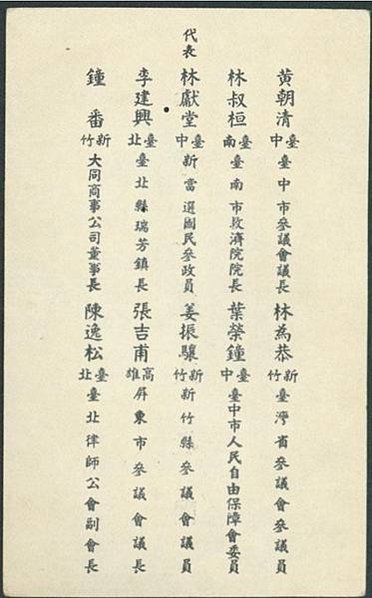 代表
黃朝清 臺中 臺中市參議會議長 林為恭 新竹 臺灣省參議會參議員
林叔桓 臺南 臺南市救濟院院長 葉榮鐘 臺中 臺中市人民自由保障會委員
林獻堂 臺中 新當選國民參政員 姜振驤 新竹 新竹縣參議會議員
李建興 臺北 臺北縣瑞芳鎮長 張吉甫 高雄 屏東市參議會議長
鐘番 新竹 大同商事公司董事長 陳逸松 臺北 臺北律師公會副會長